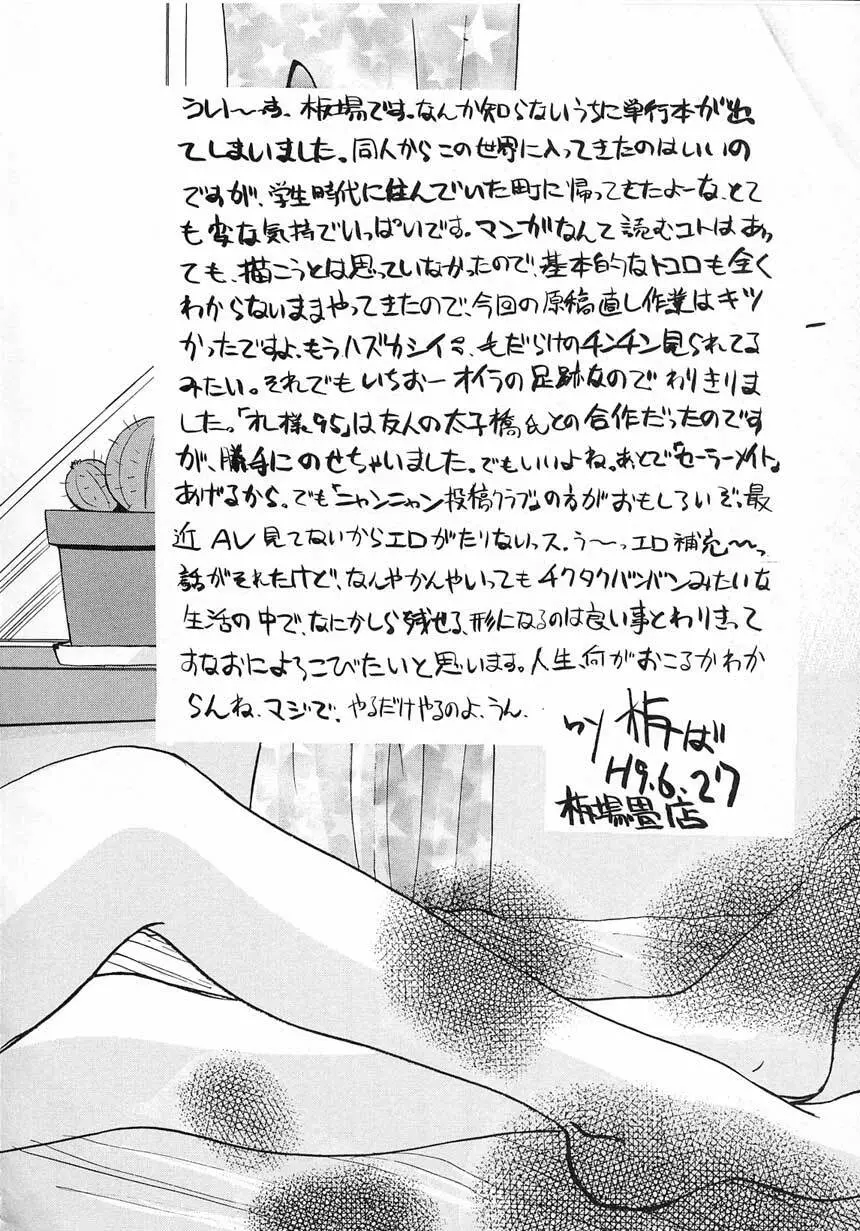 ういーす。板場です。なんか知らないうちに単行本が出
てしまいました。同人からこの世界に入ってきたのはいいの
ですが、学生時代に住んでいた町に帰ってきたよーな、とて
も変な気持でいっぱいです。マンガなんて読むコトはあっ
ても、描こうとは思っていなかったので、基本的なトコロも全く
わからないままやってきたので、今回の原稿直し作業はキツ
かったですよ、もうハズカシイ、毛だらけのチンチン見られてる
みたい。それでもいちおー オイラの足跡なのでわりきりま
した。「オレ様95」は友人の太子橋氏との合作だったのです
が、勝手にのせちゃいました。でもいいよね。あとで「セーラーメイト」
あげるから。でも「ニャンニャン投稿クラブ」の方がおもしろいぞっ最
近 AV 見てないからエロがたりないっス。う〜っエロ補充〜っ
話がそれたけど、なんやかんやいってもチクタクバンバンみたいな
生活の中で、なにかしら残せる、形になるのは良い事とわりきって
すなおによろこびたいと思います。人生、何がおこるかわか
らんね、マジで、やるだけやるのよ、うん。
by 板ば
H9.6.27
板場畳店